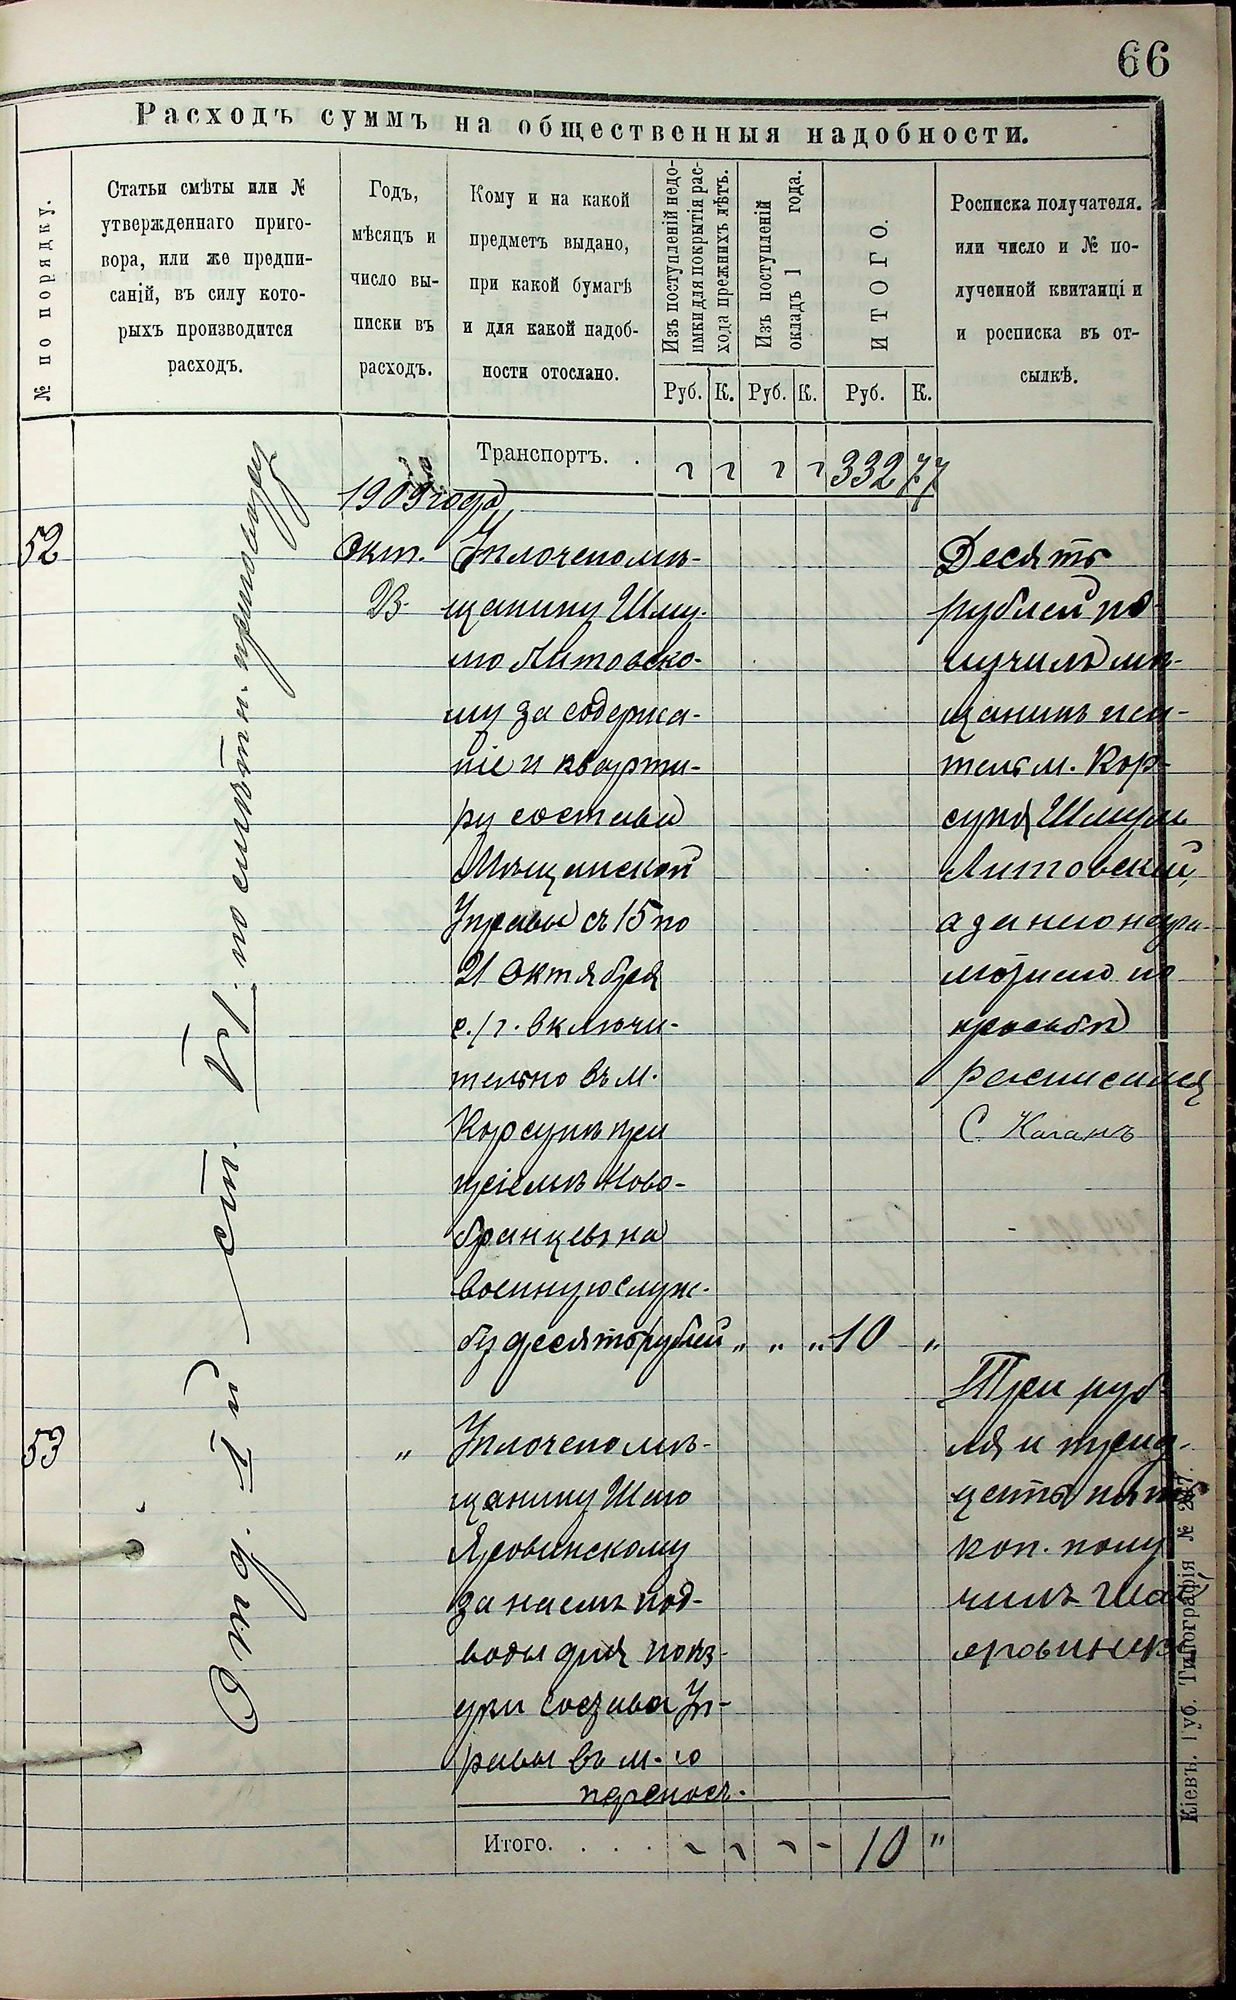 66
Расходъ суммъ на общественныя надобности.
№ по порядку.
Статьи смѣты или №
утвержденнаго приго-
вора, или же предпи-
саній, въ силу кото-
рыхъ производится
расходъ.
Годъ,
мѣсяцъ и
число вы-
писки въ
расходъ.
Кому и на какой
предметъ выдано,
при какой бумагѣ
и для какой надоб-
ности отослано.
Изъ поступленій недо-
имки для покрытія рас-
хода прежнихъ лѣтъ.
Изъ поступленій
окладъ 1 года.
ИТОГО.
Росписка получателя.
или число и № по-
лученной квитанці и
и росписка въ от-
сылкѣ.
Руб. К. Руб. К. Руб. К.
Транспортъ. . 332 77
1909 года
Отд. II й ст. VI по смѣтн.
52
Окт.
23
Уплочено мѣ-
щанину Шму-
лю Литовско-
му за содержа-
ніе и кварти-
ру состава
Мѣщанской
Управы съ 15 по
21 Октября
с./г. включи-
тельно въ м.
Корсунѣ при
пріемѣ Ново-
бранцевъ на
военную служ-
бу десять рублей „ „ „ 10 „
Десять
рублей по-
лучилъ мѣ-
щанинъ жи-
тель м. Кор-
суня Шмуль
Литовский,
а за него негра-
мотного по
просьбѣ
росписался
С. Каганъ
53
„
Уплочено мѣ-
щанину Шаю
Яровинскому
за наемъ под-
воды для поѣз-
дки состава Уп-
равы въ м.
переносъ.
Три руб
ля и трид-
цать пять
коп. полу
чилъ Шая
Итого. . . . 10 „
Кіевъ. Губ. Типографія №